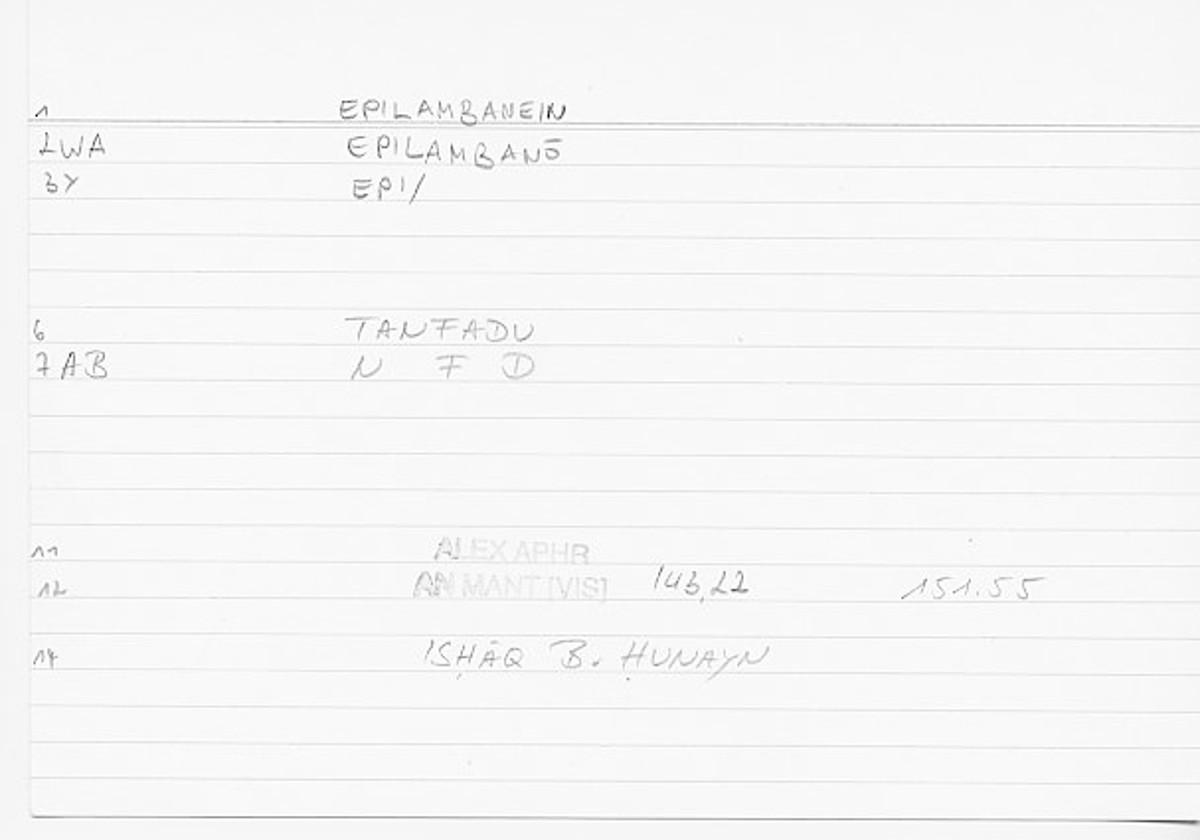 1 EPILAMBANEIN
2WA EPILAMBANŌ
3Y EPI/
6 TANFADU
7AB N F D
11 ALEX APHR
12 AN MANT [VIS] 143,22 151.55
14 ISḤĀQ B. ḤUNAYN